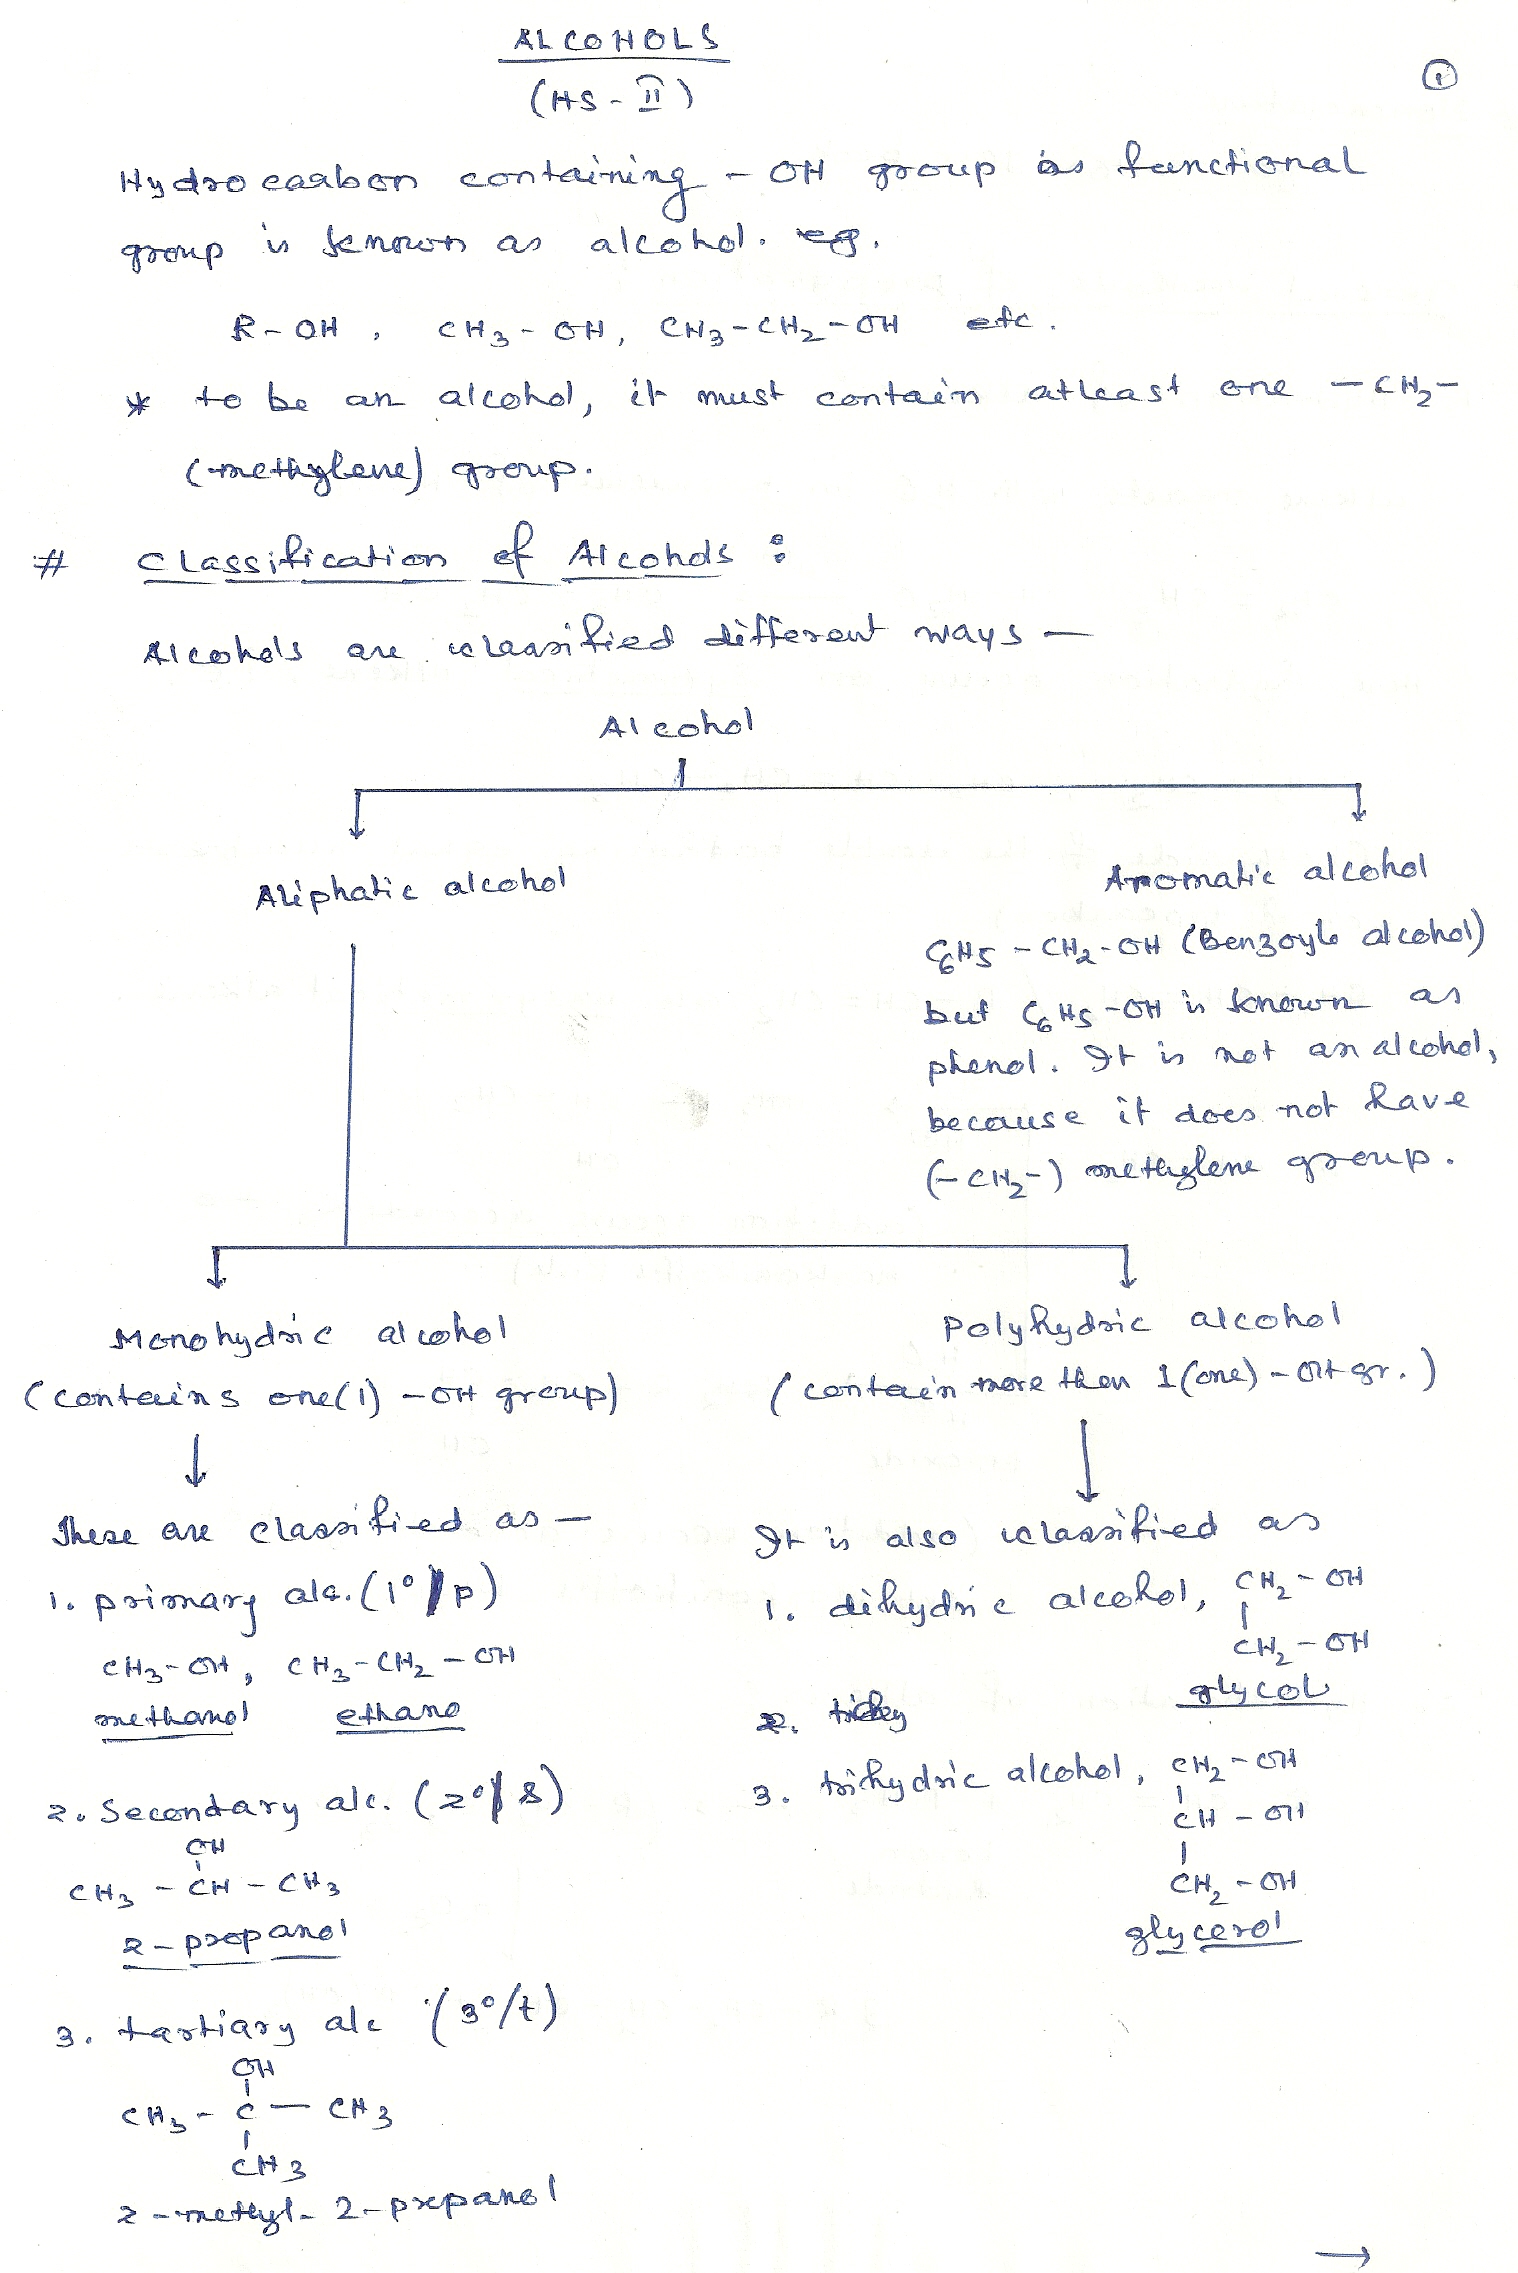 ALCOHOLS
(HS-II)
1
Hydrocarbon containing -OH group as functional
group is known as alcohol. eg.
R-OH, CH3-OH, CH3-CH2-OH etc.
* to be an alcohol, it must contain atleast one -CH2-
(methylene) group.
# Classification of Alcohols :
Alcohols are classified different ways —
Alcohol
Aliphatic alcohol
Aromatic alcohol
C6H5-CH2-OH (Benzoyle alcohol)
but C6H5-OH is known as
phenol. It is not an alcohol,
because it does not have
(-CH2-) methylene group.
Monohydric alcohol
(contains one(1) -OH group)
These are classified as —
1. primary alc. (1°/p)
CH3-OH, CH3-CH2-OH
methanol ethano
2. Secondary alc. (2°/s)
OH
CH3-CH-CH3
2-propanol
3. tartiary alc (3°/t)
OH
CH3-C-CH3
CH3
2-methyl-2-propanol
Polyhydric alcohol
(contain more than 1(one)-OH gr.)
It is also classified as
1. dihydric alcohol, CH2-OH
CH2-OH
glycol
2.
3. trihydric alcohol, CH2-OH
CH-OH
CH2-OH
glycerol